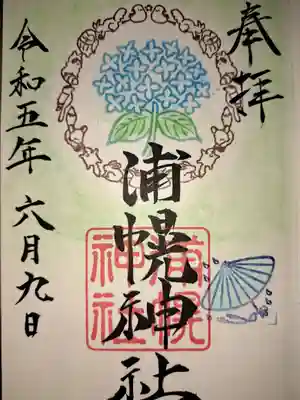 奉拝
浦幌神社
浦幌
神社
令和五年 六月九日